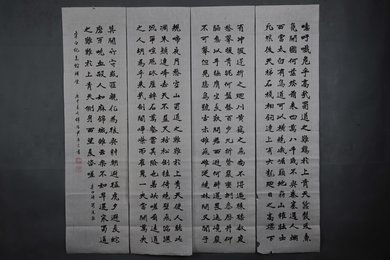 噫吁哦危乎高哉蜀道之難難於上青天蠶叢及魚
鳧開國何茫然爾來四萬八千歲不與秦塞通人煙
西當太白有鳥道可以橫絕峨眉巔地崩山摧壯士
死然後天梯石棧相鉤連上有六龍回日之高標下
有衝波逆折之回川黃鶴之飛尚不得過猿猱欲度
愁攀援青泥何盤盤百步九折縈巖巒捫參歷井仰
脅息以手撫膺坐長嘆問君西遊何時還畏途巉巖
不可攀但見悲鳥號古木雄飛雌從繞林間又聞子
規啼夜月愁空山蜀道之難難於上青天使人聽此
凋朱顏連峰去天不盈尺枯松倒掛倚絕壁飛湍瀑
流爭喧豗砯崖轉石萬壑雷其險也若此嗟爾遠道
之人胡為乎來哉劍閣崢嶸而崔嵬一夫當關萬夫
莫開所守或匪親化為狼與豺朝避猛虎夕避長蛇
磨牙吮血殺人如麻錦城雖云樂不如早還家蜀道
之難難於上青天側身西望長咨嗟